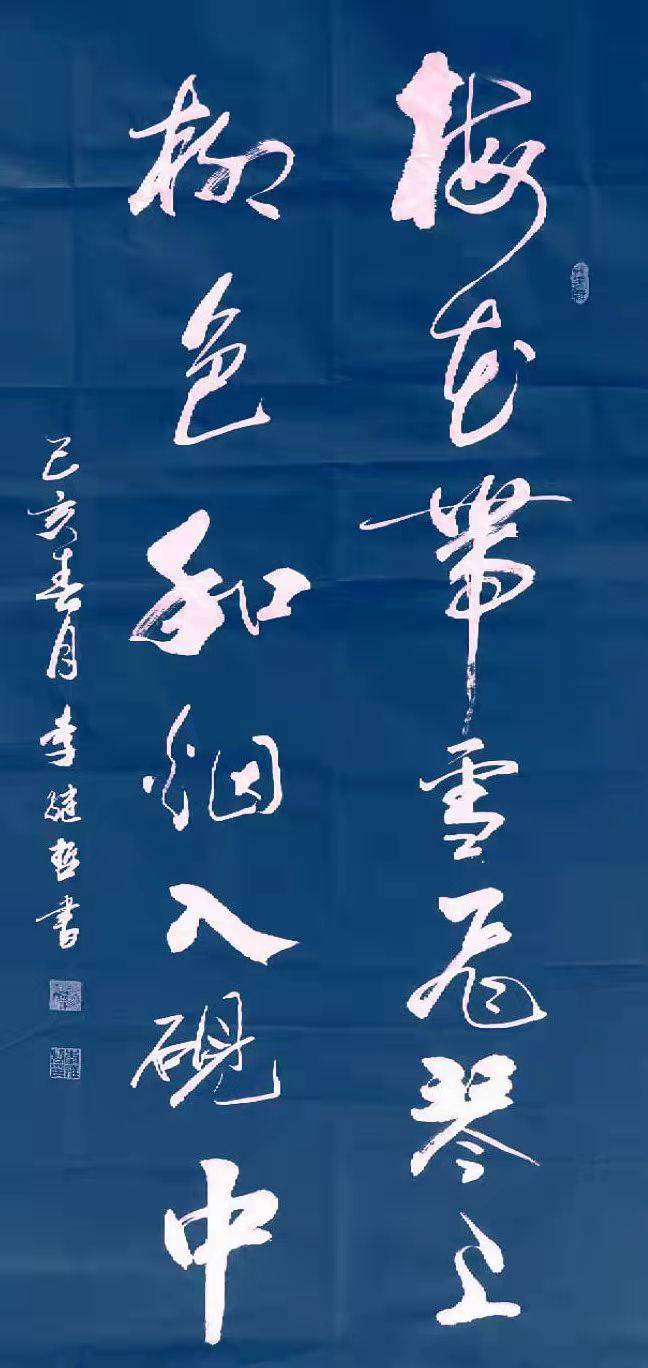 梅花帶雪飛琴上
柳色和烟入硯中
己亥春月李继哲書